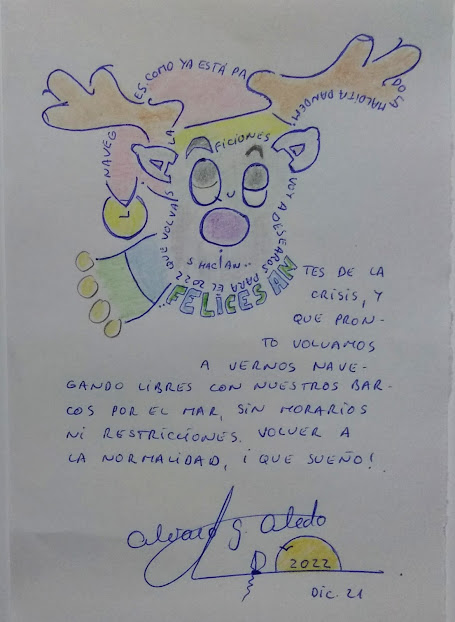 ES, COMO YA ESTÁ PA
MALDITA PANDEM
NAVEG
A
LA
FICIONES
QUE VOLVAIS
VOY A DESEAROS PARA EL 2022
S HACÍAN..
FELICES AN
TES DE LA
CRISIS, Y
QUE PRON-
TO VOLVAMOS
A VERNOS NAVE-
GANDO LIBRES CON NUESTROS BAR-
COS POR EL MAR, SIN HORARIOS
NI RESTRICCIONES. VOLVER A
LA NORMALIDAD, ¡QUE SUEÑO!
Alvaro G. Aledo
2022
DIC. 21